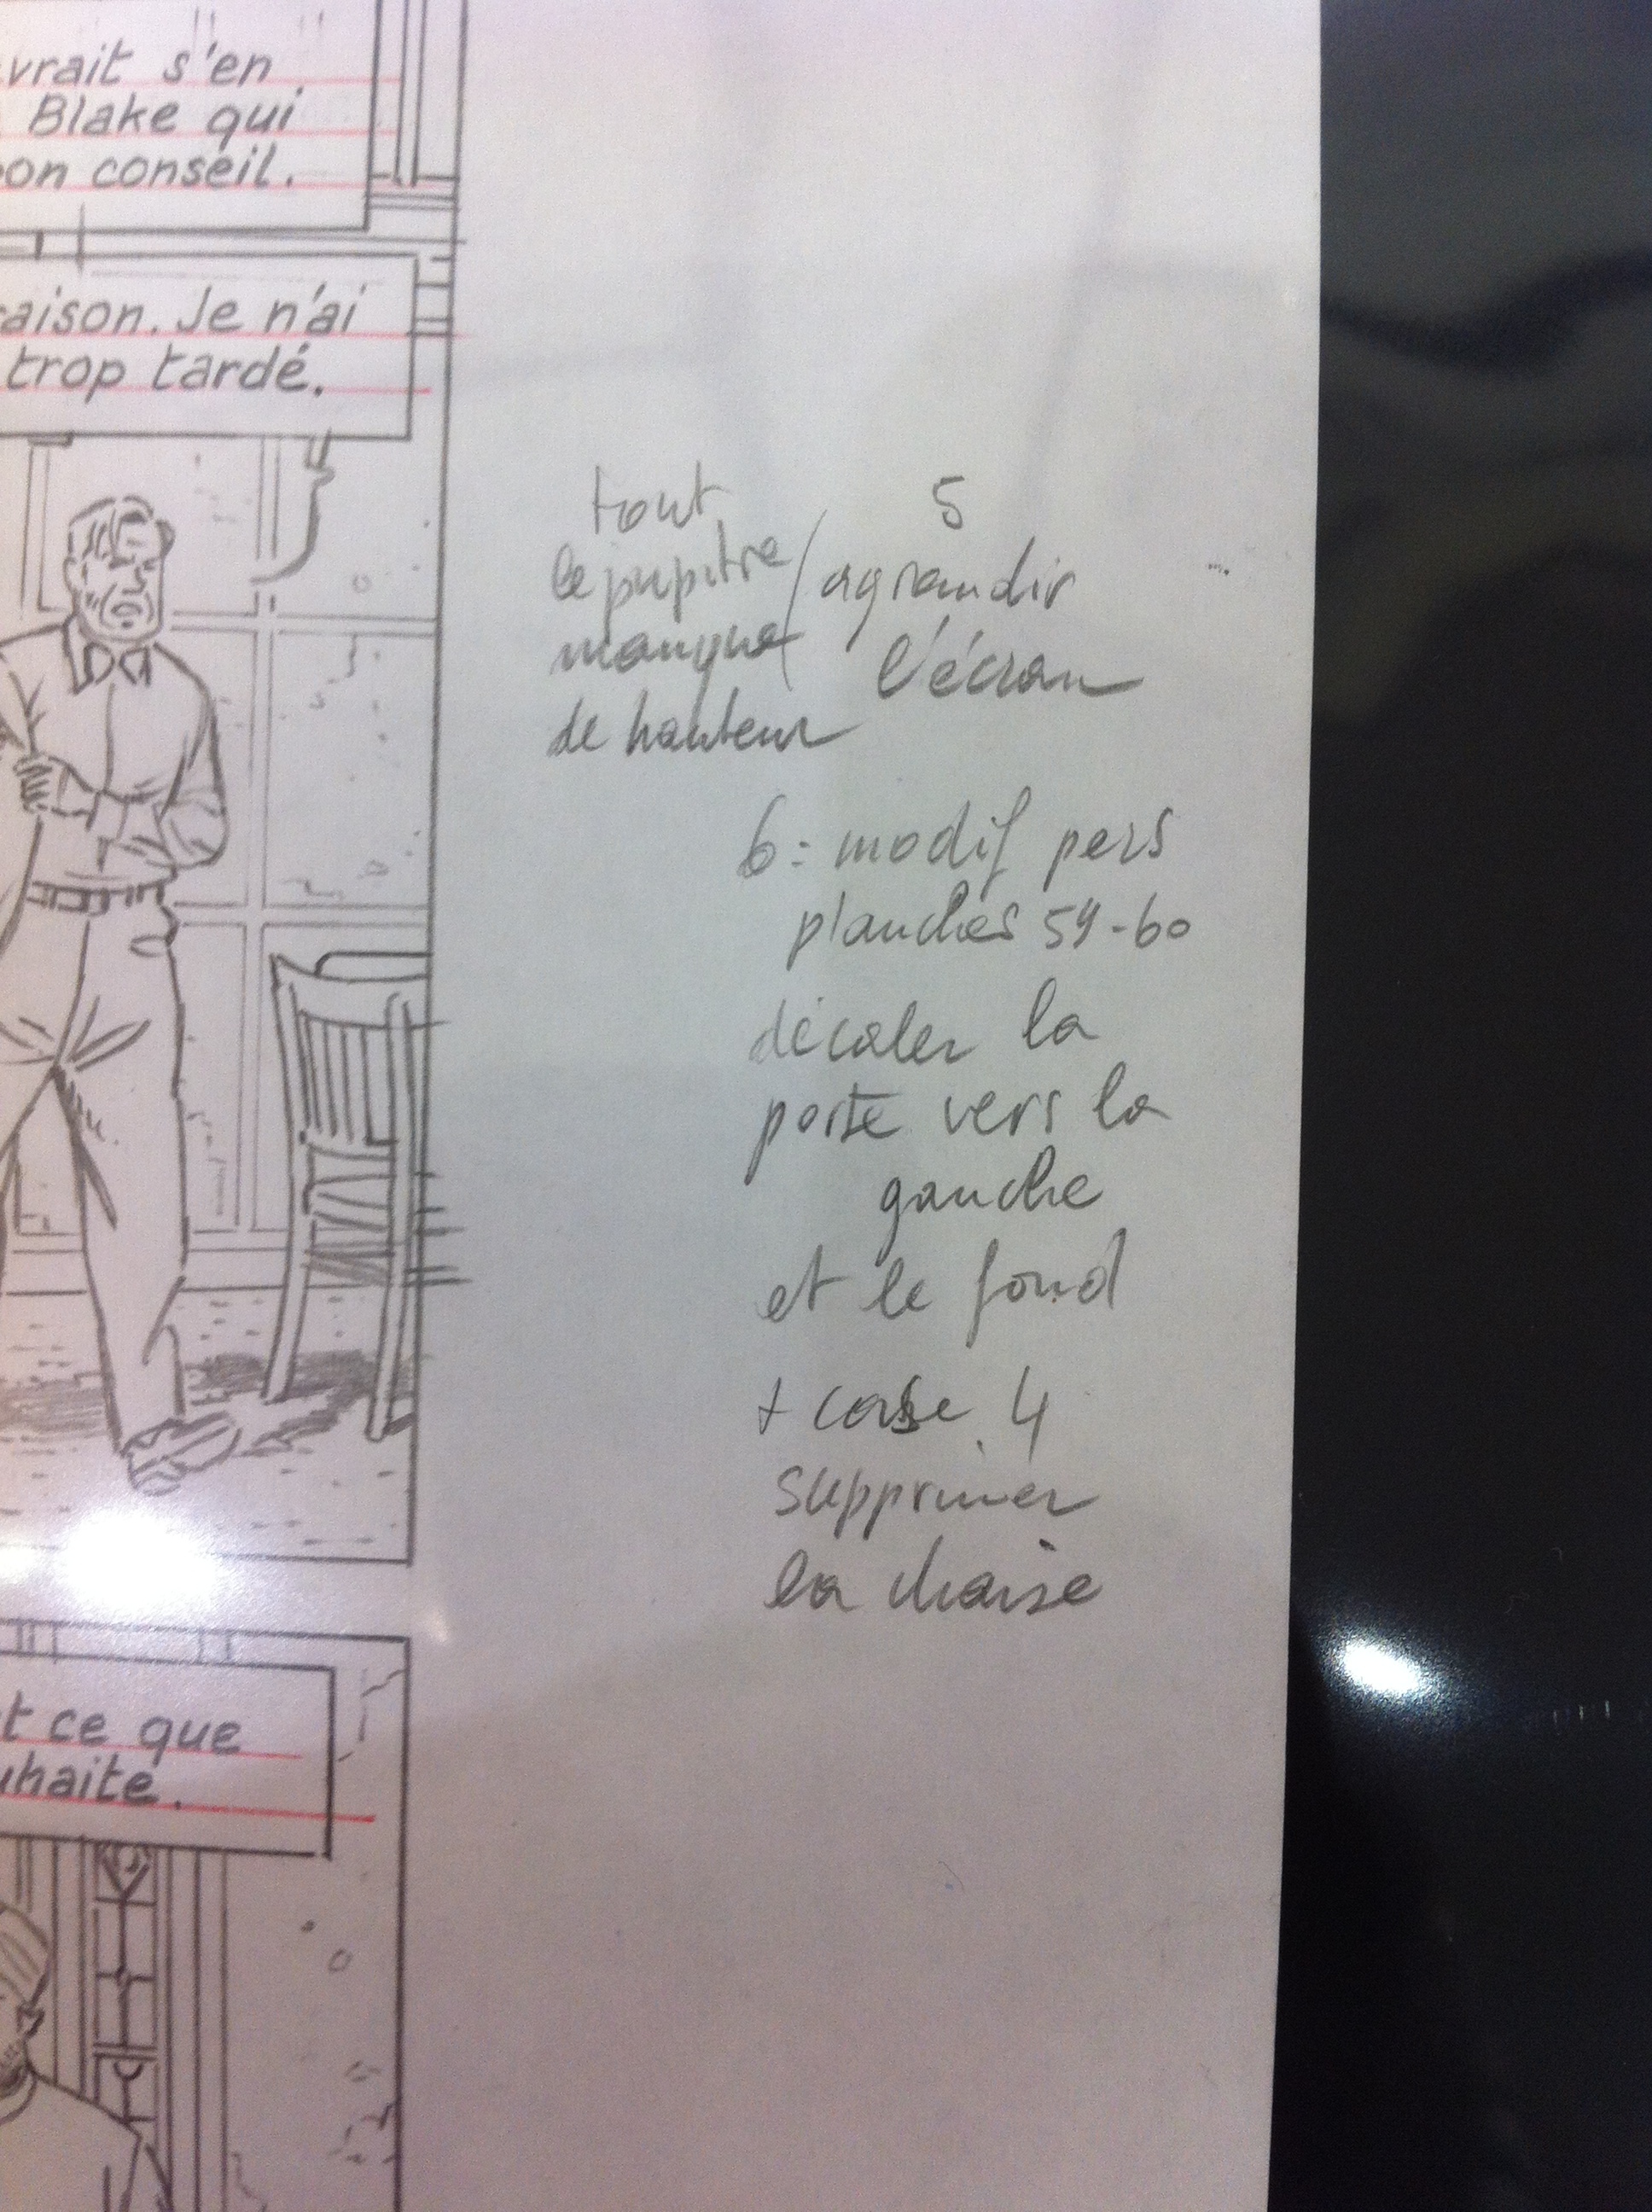 vrait s'en
Blake qui
on conseil.
aison. Je n'ai
trop tardé.
tout
le pupitre
manque
de hauteur
5
agrandir
l'écran
6: modif pers
planches 59-60
décaler la
porte vers la
gauche
et le fond
+ case 4
supprimer
la chaise
t ce que
uhaite.